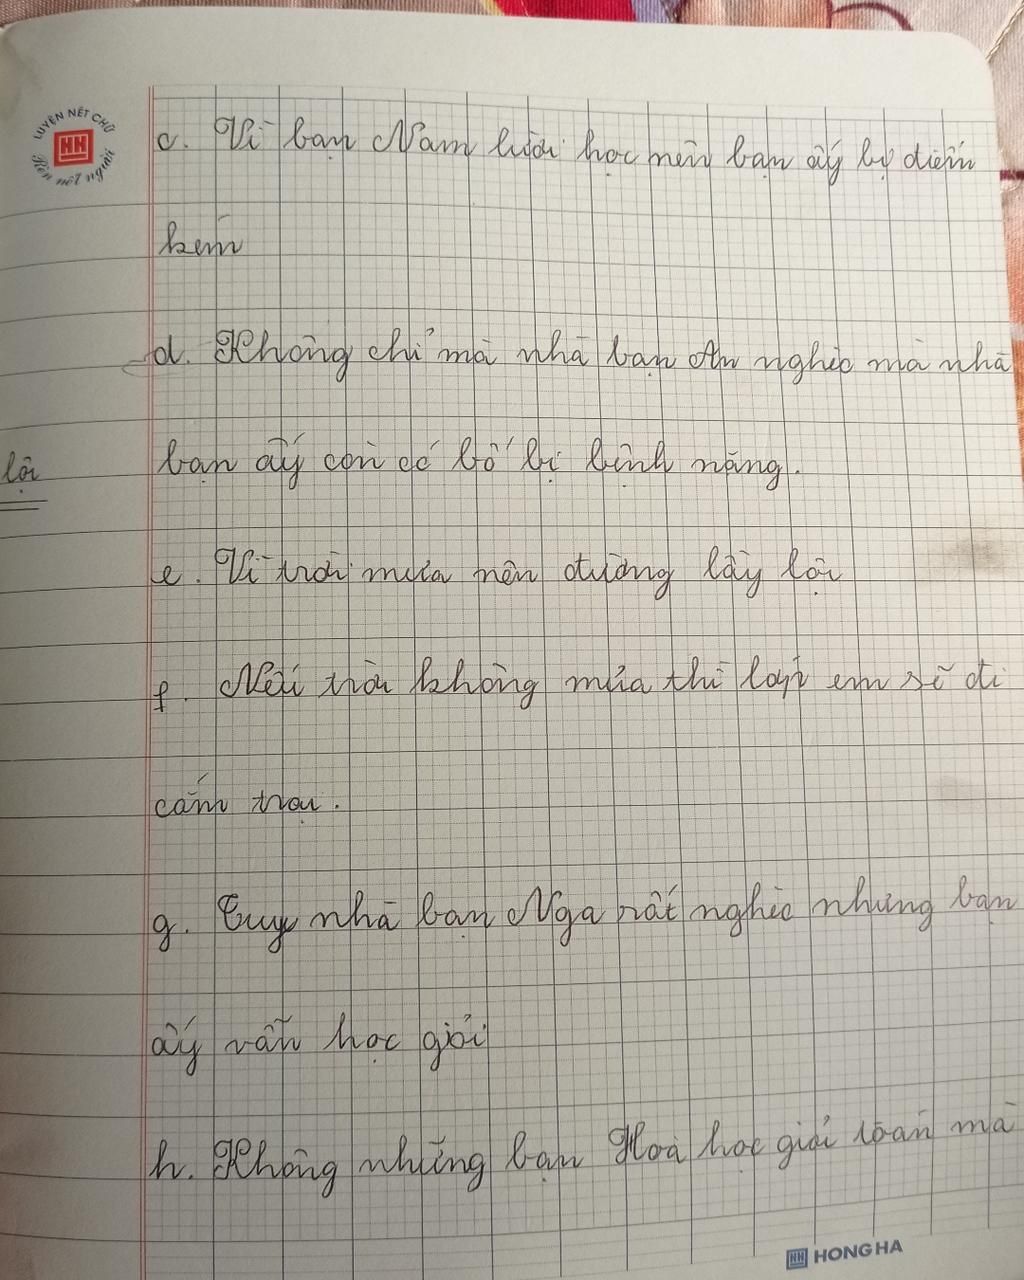 LUYỆN NÉT CHỮ
HH
Rèn nết người
c. Vì bạn Nam lười học nên bạn ấy bị điểm
kém
d. Không chỉ mà nhà bạn An nghèo mà nhà
bạn ấy còn có bố bị bệnh nặng.
lội
e. Vì trời mưa nên đường lầy lội
f. Nếu trời không mưa thì lớp em sẽ đi
cắm trại.
g. Tuy nhà bạn Nga rất nghèo nhưng bạn
ấy vẫn học giỏi
h. Không những bạn Hoà học giỏi toán mà
HH HONG HA